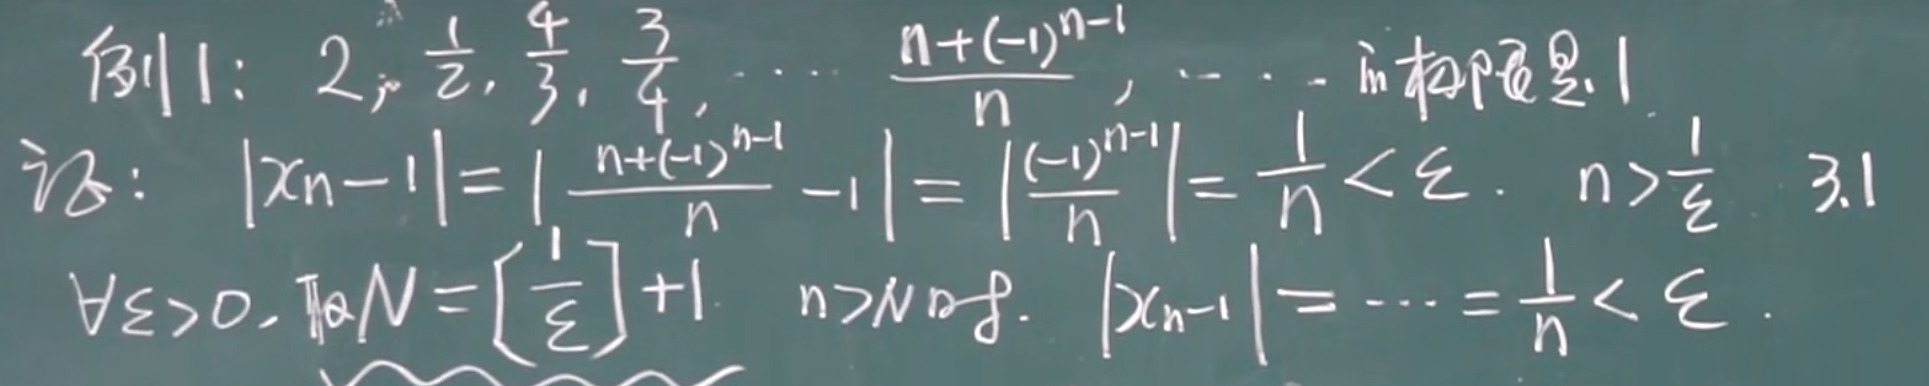 例1: 2, 1/2, 4/3, 3/4, …… (n+(-1)^{n-1})/n, …… 的极限是1
证: |xn-1| = |(n+(-1)^{n-1})/n -1| = |(-1)^{n-1}/n| = 1/n < ε. n > 1/ε 3.1
∀ε>0, 取N=[1/ε]+1. n>N时. |xn-1| = … = 1/n < ε.